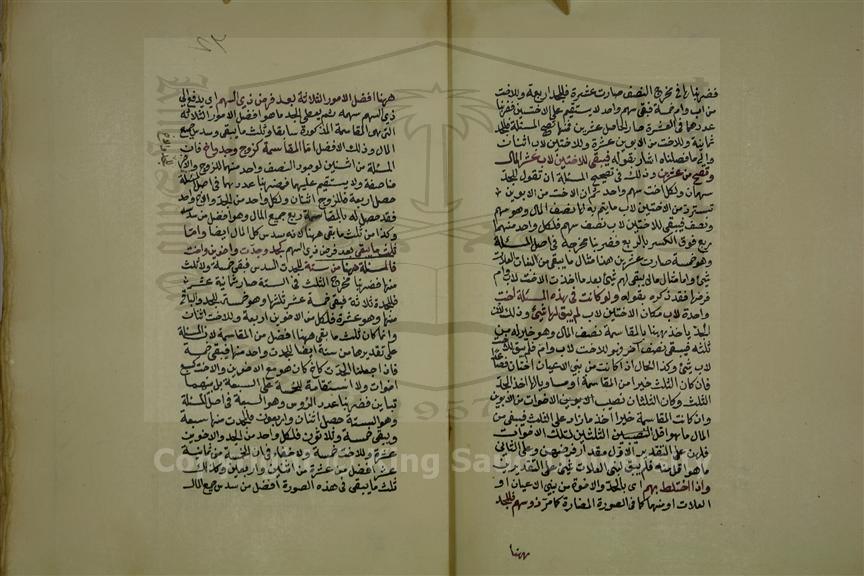 فضربناها في مخرج النصف صارت عشرة فللجد اربعة وللاخت
من اب وام خمسة فبقي سهم واحد لا يستقيم على الاختين فضربنا
عددهما في العشرة صار الحاصل عشرين فمنها تصح المسئلة للجد
ثمانية وللاخت من الابوين عشرة وللاختين لاب اثنان
والى ما فصلناه اشار بقوله فيبقى للاختين لاب عشر المال
وتصح من عشرين وذلك في تصحيح المسئلة ان تقول للجد
سهمان ولكل اخت سهم واحد ثم ان الاخت من الابوين
تسترد من الاختين لاب ما يتم به لها نصف المال وهو سهم
ونصف فيبقى للاختين لاب نصف سهم فلكل واحد منهما
ربع فوق الكسر بالربع فضربنا مخرجه في اصل المسئلة
وهو خمسة صار عشرين هذا مثال ما يبقى من البنات لعلات
شئ واما مثال ما لا يبقى لهم شئ بعد ما اخذت الاخت لاب وام
فرضها فقد ذكره بقوله ولو كانت في هذه المسئلة اخت
واحدة لاب مكان الاختين لاب لم يبق لها شئ وذلك لان
الجد ياخذ ههنا بالمقاسمة نصف المال وهو خير له من
ثلثه فيبقى نصف آخر وهو للاخت لاب وام فلم يبق للاخت
لاب شئ وكذا الحال اذا كانت من بني الاعيان اختان فصاعدا
فان كان الثلث خيرا من المقاسمة او مساويا لها اخذ الجد
الثلث وكان الثلثان نصيب الاخوين الاختين من الابوين
وان كانت المقاسمة خيرا اخذ ما زاد على الثلث فيبقى من
المال ما هو اقل من الثلثين لتلك الاخوات
فلهن على التقدير الاول مقدار فرضهن وعلى الثاني
ما هو اقل منه فلم يبق لبني العلات شئ على التقديرين
واذا اختلط بهم اى بالجد والاخوة من بني الاعيان او
العلات او منهما كما في الصورة المضارة كما مر ذو سهم فللجد
ههنا
ههنا افضل الامور الثلاثة بعد فرض ذى السهم اى يدفع الى
ذى السهم سهمه ثم يعطى الجد ما هو افضل الامور الثلاثة
التى هى المقاسمة المذكورة سابقا وثلث ما يبقى وسدس جميع
المال وذلك الافضل اما المقاسمة كزوج وجد واخ فان
المسئلة من اثنين لوجود النصف واحد منهما للزوج والآخر
مناصفة ولا يستقيم عليهما فضربنا عددهما في اصل المسئلة
حصل اربعة فللزوج اثنان ولكل واحد من الجد والاخ واحد
فقد حصل له بالمقاسمة ربع جميع المال وهو افضل من سدسه
وكذا من ثلث ما بقى ههنا لانه سدس كل المال ايضا واما
ثلث ما يبقى بعد فرض ذى السهم كجد وجدة واخوين واخت
فالمسئلة ههنا من ستة للجدة السدس فبقى خمسة ولا ثلث
منها فضربنا مخرج الثلث في الستة صار ثمانية عشر
فللجدة ثلاثة فبقى خمسة عشر ثلثها وهو خمسة للجد والباقي
منها وهو عشرة فلكل من الاخوين اربعة وللاخت اثنان
وانما كان ثلث ما بقى ههنا افضل من المقاسمة لان المسئلة
على تقديرها من ستة ايضا للجدة واحد منها فبقى خمسة
فاذا جعلنا الجد كاخ كان هو مع الاخوين والاخت كسبع
اخوات ولا استقامة للخمسة على السبعة بل بينهما
تباين فضربنا عدد الرؤس وهو السبعة في اصل المسئلة
وهو الستة حصل اثنان واربعون فللجدة منها سبعة
ويبقى خمسة وثلاثون فلكل واحد من الجد والاخوين
عشرة وللاخت خمسة ولا خفاء في ان الخمسة من ثمانية
عشر افضل من عشرة من اثنين واربعين وكذلك
ثلث ما يبقى في هذه الصورة افضل من سدس جميع المال
1957